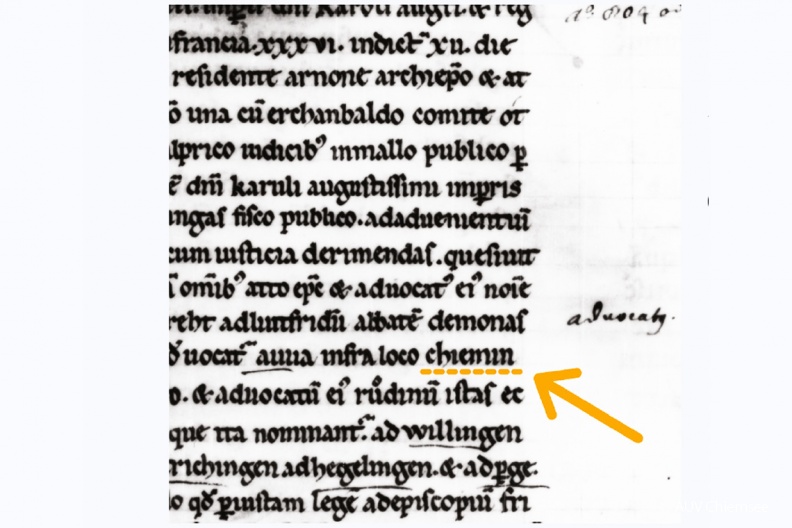 karoli augusti & reg
francia.xxxvi. indict xii. die
residente arnone archiepo & at
una cu erchanbaldo comite ot
iudicib' inmallo publico p
dni karuli augustissimi impris
angas fisco publico. adaduenientui
cum iusticia derimendas. quesiuit
omib' atto epe & aduocat' ei' noie
adliutfridu abbate demonas
auua infra loco chiemin
& aduocatu ei' rudinu istas ec
que ita nominant. ad willingen
richingen adhegelingen. & adpge.
qd piustam lege adepiscopiu fri
aduocatus.